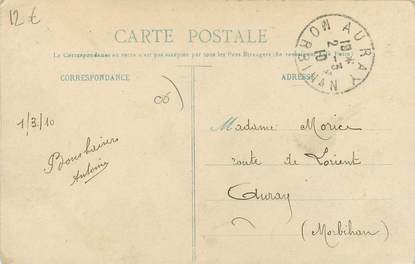 12 €
CARTE POSTALE
La Correspondance au recto n'est pas acceptée par tous les Pays Étrangers (Se renseigner à la Poste)
CORRESPONDANCE
ADRESSE
AURAY
MORBIHAN
18 *
2 - 3
10
06
1/3/10
Antoine
Madame Morice
route de Lorient
Auray
(Morbihan)